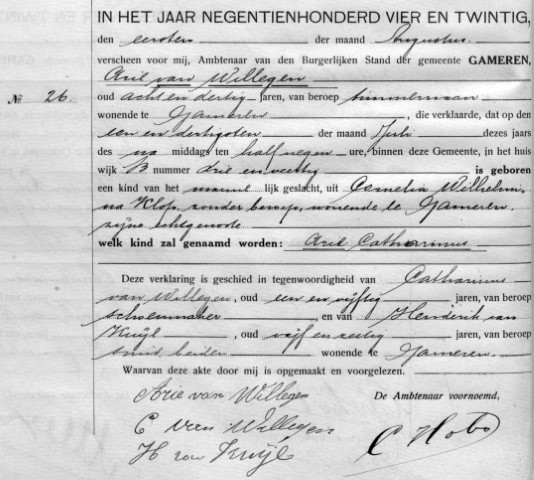 IN HET JAAR NEGENTIENHONDERD VIER EN TWINTIG,
den eersten der maand Augustus
verscheen voor mij, Ambtenaar van den Burgerlijken Stand der gemeente GAMEREN,
Arie van Willegen
No. 26. oud acht en dertig jaren, van beroep timmerman
wonende te Gameren, die verklaarde, dat op den
een en dertigsten der maand Juli dezes jaars
des na middags ten half negen ure, binnen deze Gemeente, in het huis
wijk B nummer drie en veertig is geboren
een kind van het manne lijk geslacht, uit Cornelia Wilhelmi-
na Klop, zonder beroep, wonende te Gameren,
zijne echtgenoote
welk kind zal genaamd worden: Arie Catharinus
Deze verklaring is geschied in tegenwoordigheid van Catharinus
van Willegen, oud een en vijftig jaren, van beroep
schoenmaker, en van Hendrik van
Kuijl, oud vijf en zestig jaren, van beroep
smid, beiden wonende te Gameren.
Waarvan deze akte door mij is opgemaakt en voorgelezen.
Arie van Willegen De Ambtenaar voornoemd,
C van Willegen
H van Kuijl C Hobo